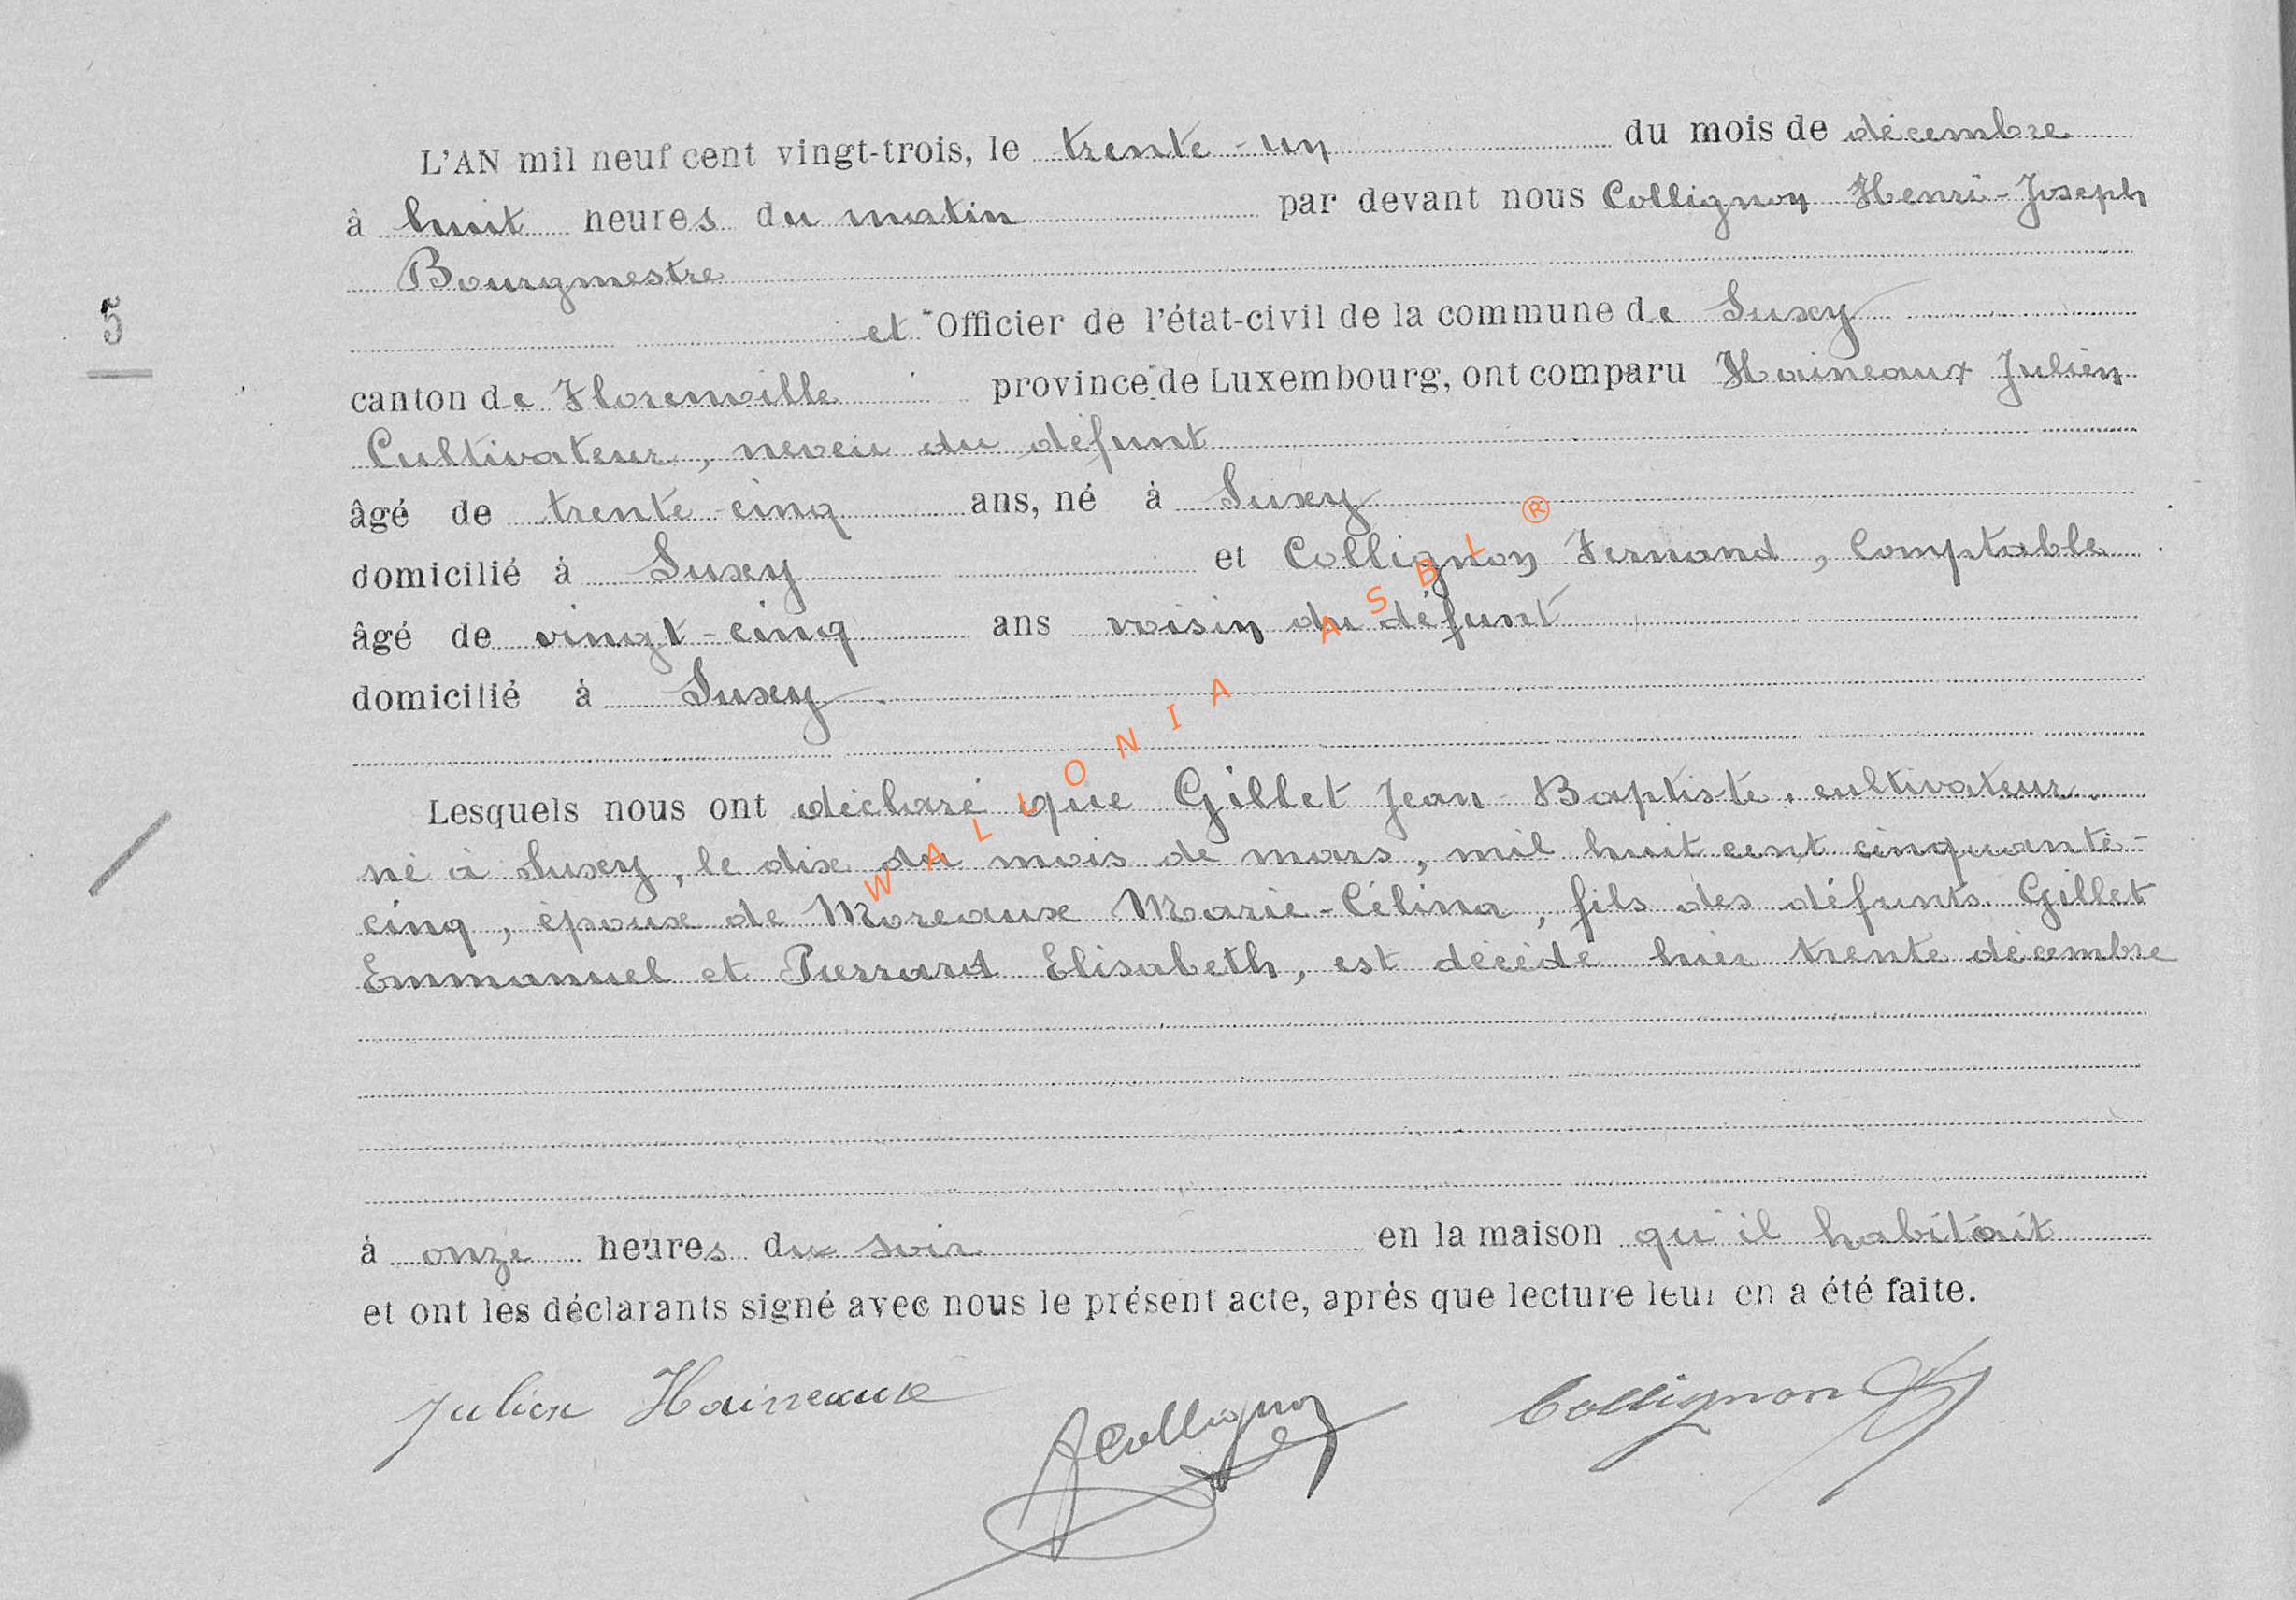 L'AN mil neuf cent vingt-trois, le trente-un du mois de décembre
à huit heures du matin par devant nous Collignon Henri-Joseph
Bourgmestre
5
et Officier de l'état-civil de la commune de Suxy
canton de Florenville province de Luxembourg, ont comparu Haineaux Julien
Cultivateur, neveu du défunt
âgé de trente-cinq ans, né à Suxy
domicilié à Suxy et Collignon Fernand, Comptable
âgé de vingt-cinq ans voisin du défunt
domicilié à Suxy.
Lesquels nous ont déclaré que Gillet Jean-Baptiste, cultivateur
né à Suxy, le dix du mois de mars, mil huit cent cinquante-
cinq, époux de Moreaux Marie-Célina, fils des défunts Gillet
Emmanuel et Pierrard Elisabeth, est décédé hier trente décembre
à onze heures du soir en la maison qu'il habitait
et ont les déclarants signé avec nous le présent acte, après que lecture leur en a été faite.
Julien Haineaux
Collignon
Collignon
WALLONIA ASBL ®